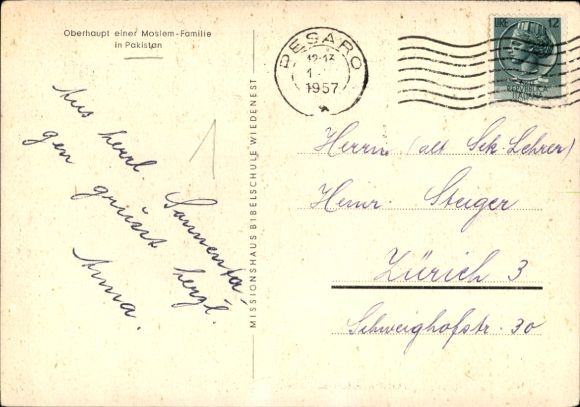 Oberhaupt einer Moslem-Familie
in Pakistan
PESARO
12-13
1957
LIRE 12
MISSIONSHAUS BIBELSCHULE WIEDENEST
Aus herrl. Sonnenta-
gen grüsst herzl.
Anna.
Herrn (alt Sek. Lehrer)
Heinr. Steiger
Zürich 3
Schweighofstr. 30